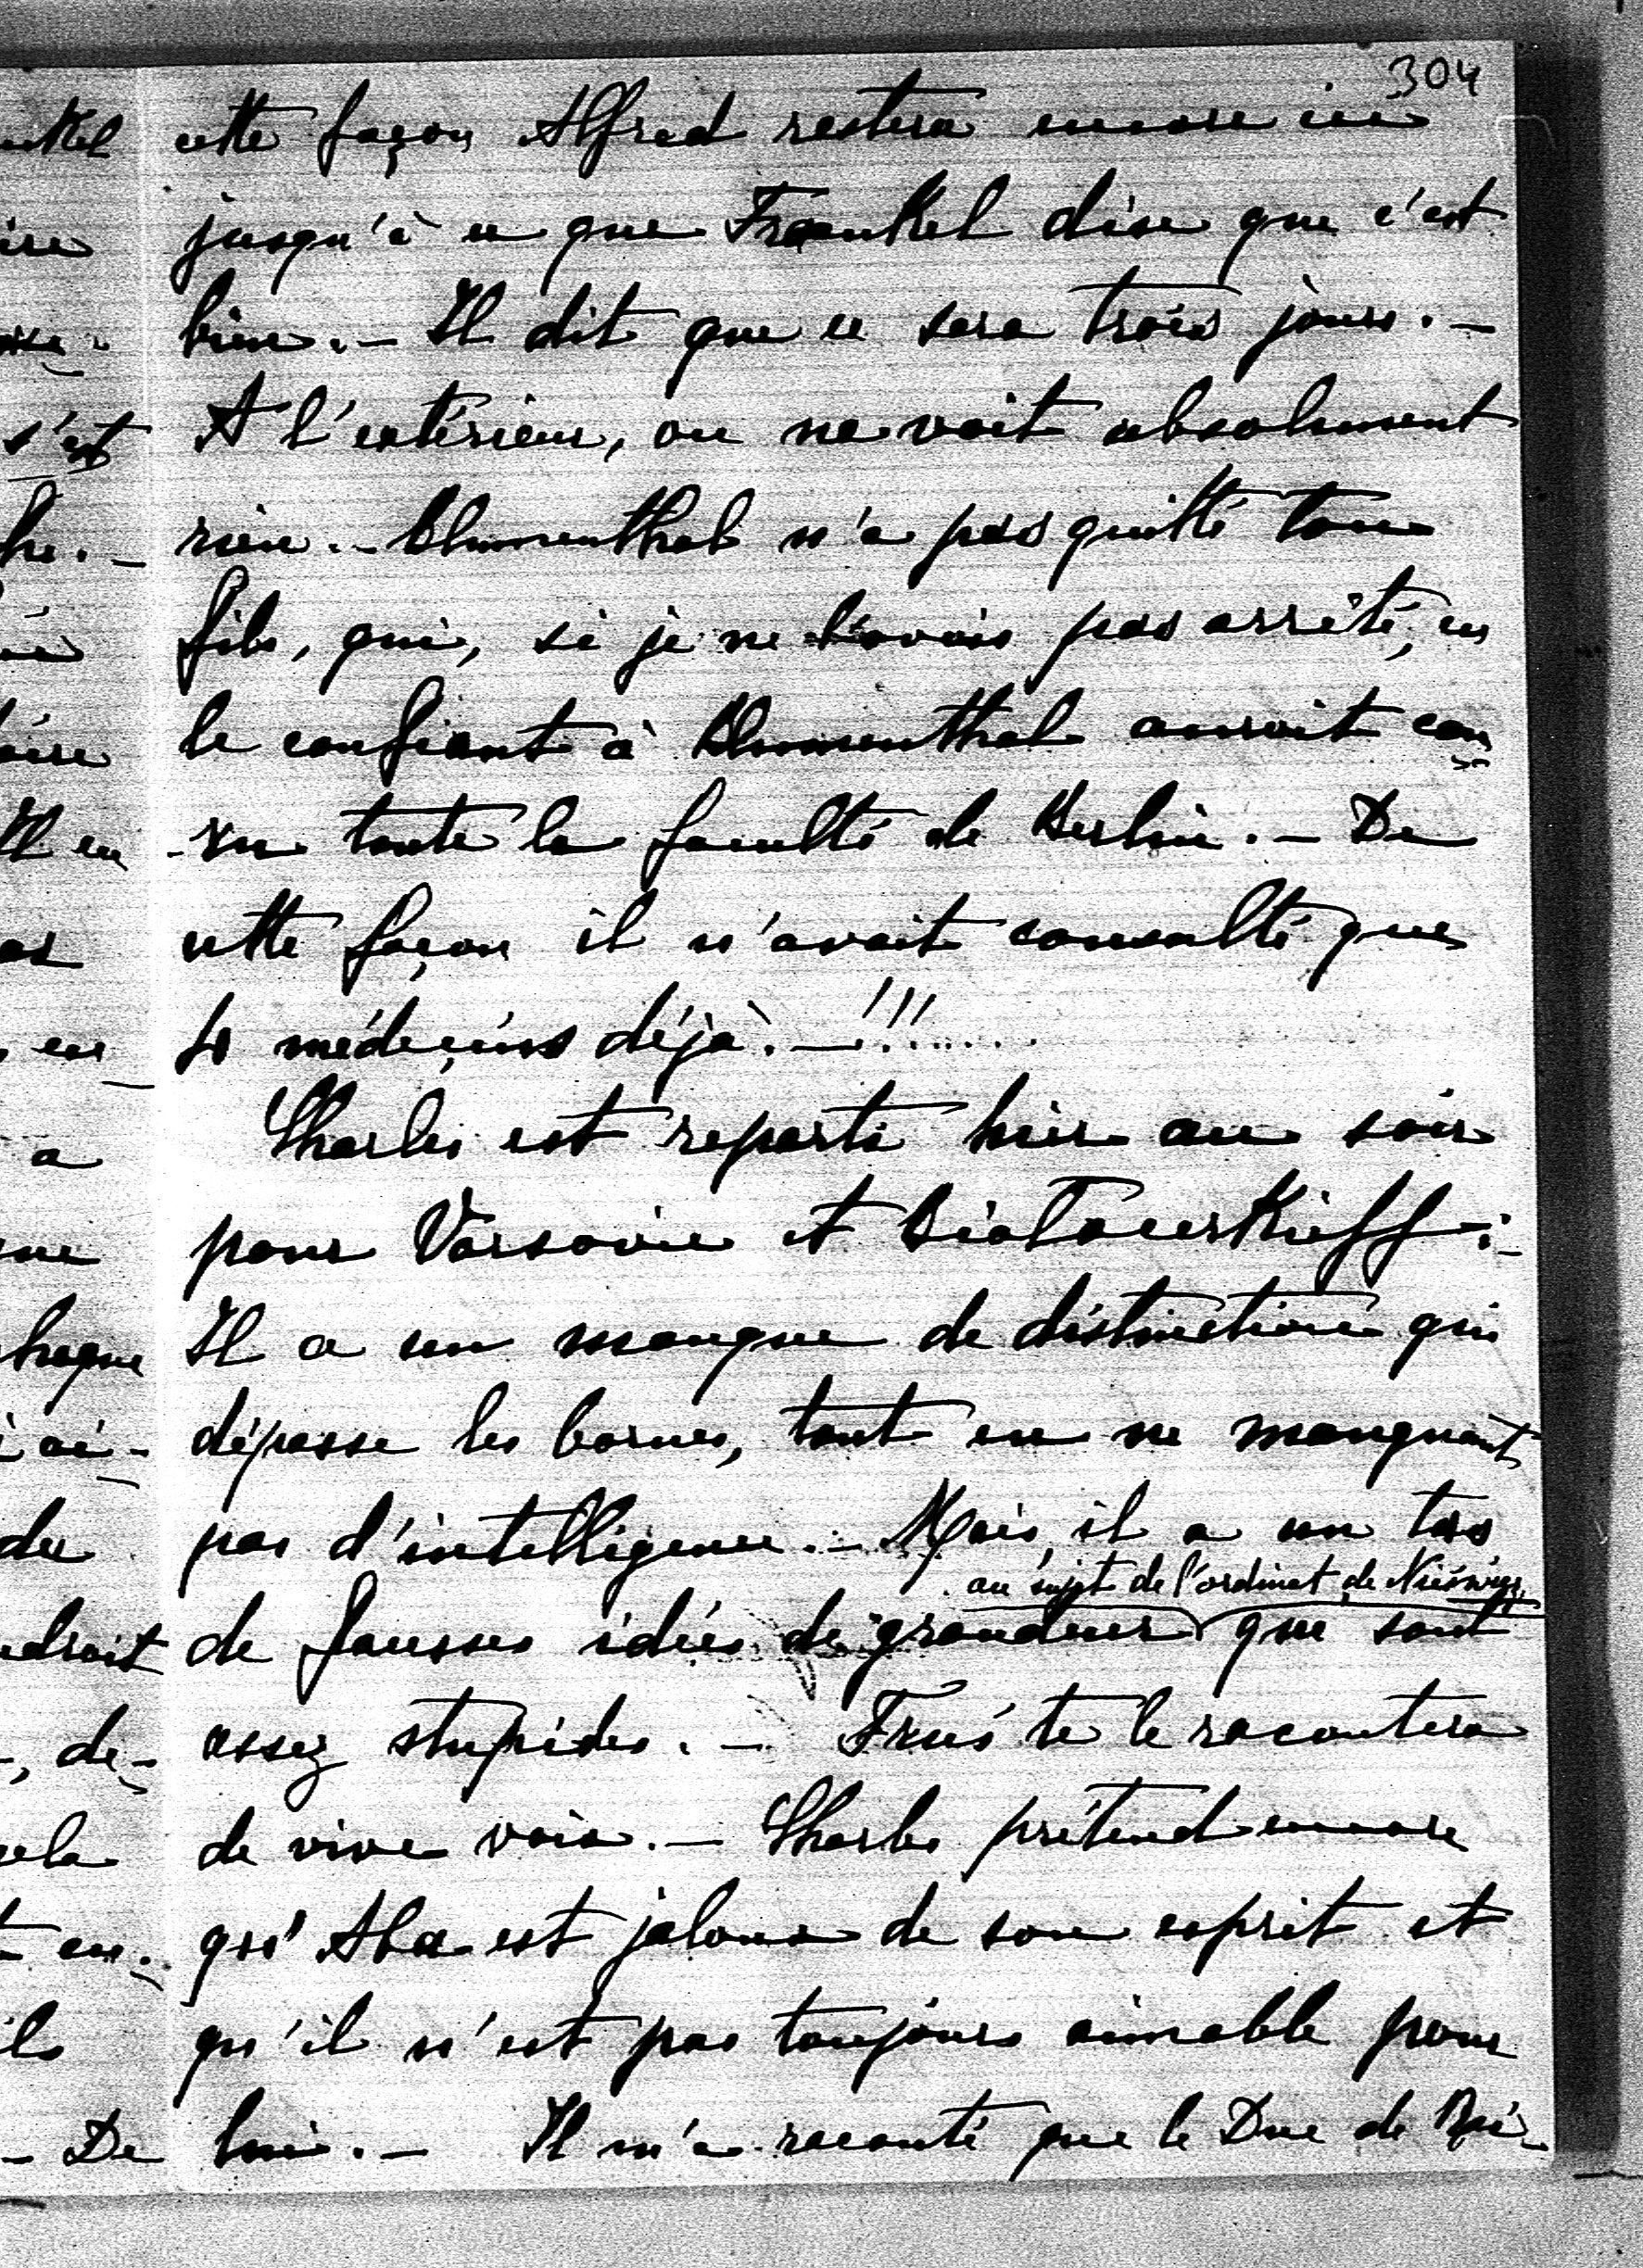 304
cette façon Alfred restera encore ici
jusqu'à ce que Fraenkel dise que c'est
bien. – Il dit que ce sera trois jours. –
A l'extérieur, on ne voit absolument
rien. – Blumenthal n'a pas quitté ton
fils, qui, si je ne l'avais pas arrêté, en
le confiant à Blumenthal aurait cou
-ru toute la faculté de Berlin. – De
cette façon il n'avait consulté que
4 médecins déjà. – !!!......
Charles est reparti hier au soir
pour Varsovie et Białocerkieff. –
Il a un manque de distinction qui
dépasse les bornes, tout en ne manquant
pas d'intelligence. – Mais il a un tas
au sujet de l'ordinat de Nieśwież,
de fausses idées de grandeur que sont
assez stupides. – Fruś te le racontera
de vive voix. – Charles prétend encore
qu'Aba est jaloux de son esprit et
qu'il n'est pas toujours aimable pour
lui. – Il m'a raconté que le Duc de
nkel
ire
s'est
he. –
oire
Il en
as
en
a
haque
ai –
de
udroit
–, de –
cela
en
ils
– De